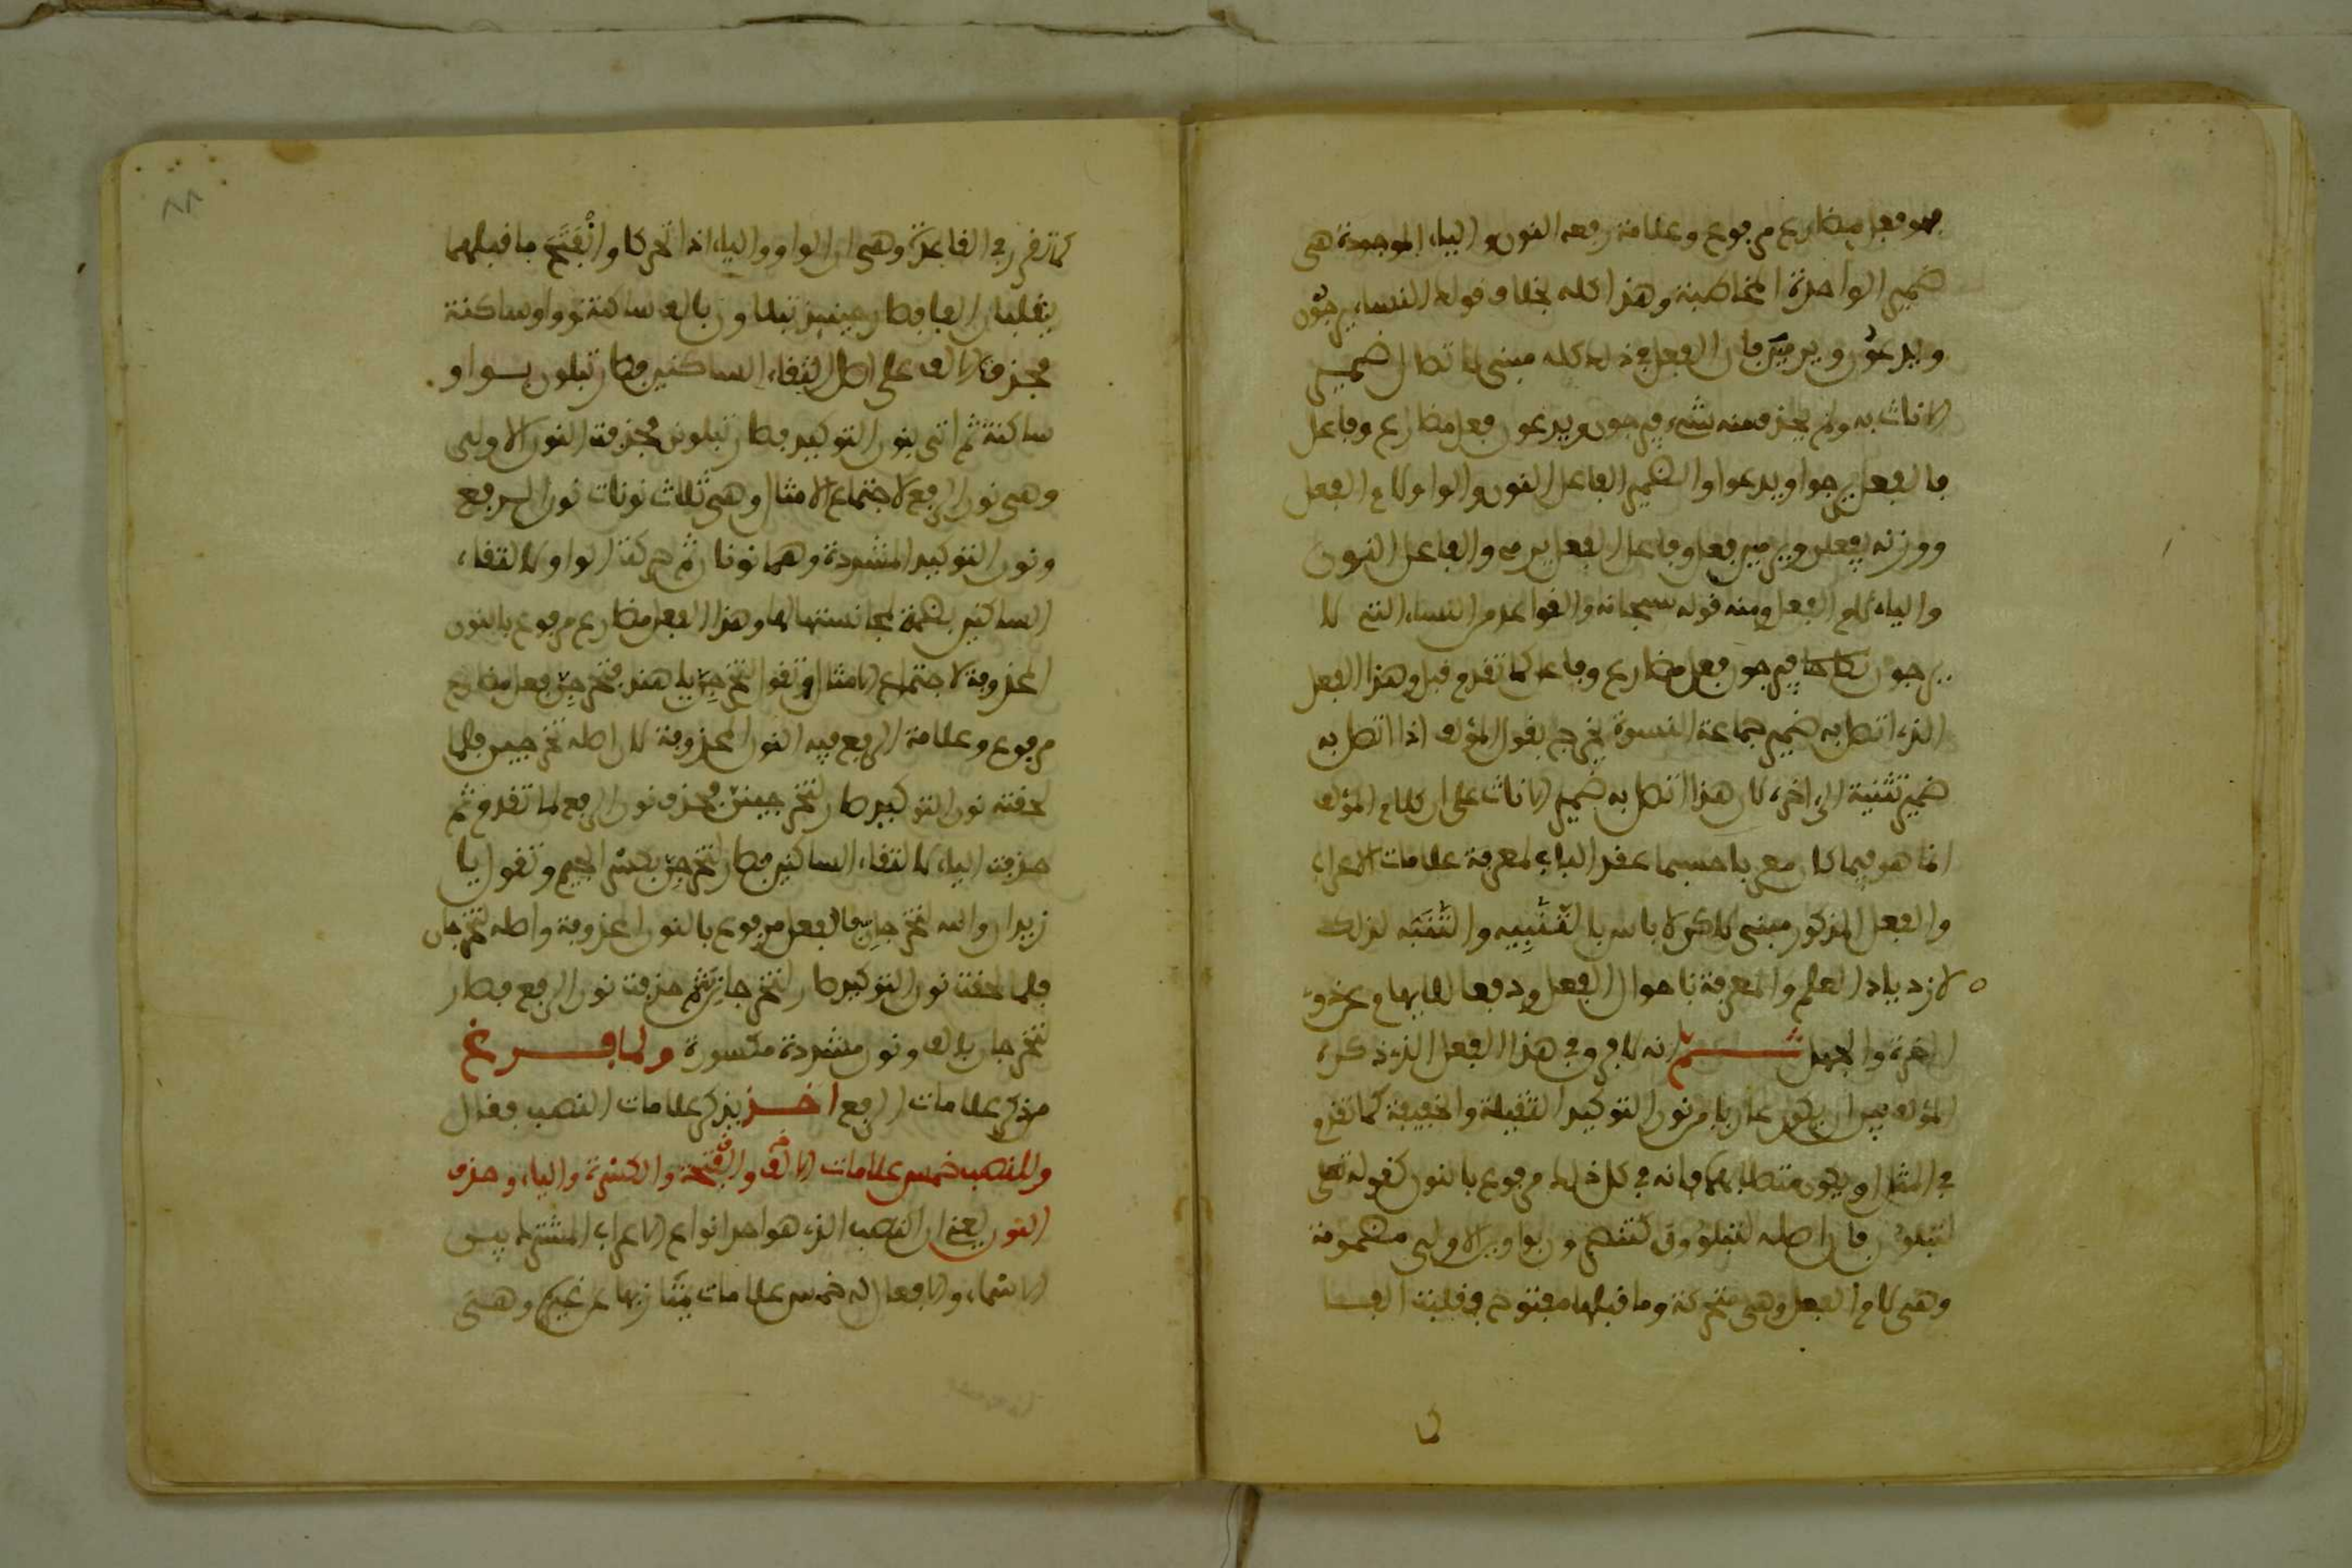 فهو فعل مضارع مرفوع وعلامة رفعه النون والياء الموجودة هى
ضمير الواحدة المخاطبة وهذا كله بخلاف قولك النساء يرجون
ويدعون ويرمين فان الفعل في ذلك كله مبنى لاتصال ضمير
الاناث به ولم يحذف منه شىء فيرجون ويدعون فعل مضارع وفاعل
فالفعل يرجوا ويدعوا والضمير الفاعل النون والواو لام الفعل
ووزنه يفعلن ويرمين فعل وفاعل الفعل يرمي والفاعل النون
والياء لام الفعل ومنه قوله سبحانه والقواعد من النساء التى لا
يرجون نكاحا فيرجون فعل مضارع وفاعل كما تقدم قبل وهذا الفعل
الذي اتصل به ضمير جماعة النسوة يخرج بقول المؤلف اذا اتصل به
ضمير تثنية الى اخره لان هذا اتصل به ضمير الاناث على ان كلام المؤلف
انما هو فيما كان معربا حسبما عقد الباب لمعرفة علامات الاعراب
والفعل المذكور مبنى لاكن لا باس بالتنبيه والتنبه لذلك
لازدياد العلم والمعرفة باحوال الفعل ودفعا للابهام
والجهل ثم انه لا فرق في هذا الفعل الذي ذكره
المؤلف بين ان يكون عاريا من نون التوكيد الثقيلة والخفيفة كما تقدم
في المثال او يكون متصلا بهما فانه في كل ذلك مرفوع بالنون كقوله تعلى
لتبلون فان اصله لتبلوون كتنصرون بواوين الاولى مضمومة
وهى لام الفعل وهى متحركة وما قبلها مفتوح فقلبت الفا
كما تقرر في القاعدة وهى ان الواو والياء اذا تحركا وانفتح ما قبلهما
يقلبان الفا فصار حينئذ تبلاون بالف ساكنة وواو ساكنة
فحذفت الالف على اصل التقاء الساكنين فصار تبلون بواو
ساكنة ثم اتى بنون التوكيد فصار تبلونن فحذفت النون الاولى
وهى نون الرفع لاجتماع الامثال وهى ثلاث نونات نون الرفع
ونون التوكيد المشددة وهما نونان ثم حركت الواو لالتقاء
الساكنين بضمة لمجانستها لها وهذا الفعل مضارع مرفوع بالنون
المحذوفة لاجتماع الامثال وتقول لتخرجن يا هند فتخرجن فعل مضارع
مرفوع وعلامة الرفع فيه النون المحذوفة لان اصله تخرجين فلما
لحقته نون التوكيد صار لتخرجينن فحذف نون الرفع لما تقدم ثم
حذفت الياء لالتقاء الساكنين فصار لتخرجن بكسر الجيم وتقول يا
زيدان والله لتخرجان فالفعل مرفوع بالنون المحذوفة واصله لتخرجان
فلما لحقته نون التوكيد صار لتخرجاننّ ثم حذفت نون الرفع فصار
لتخرجان بالف ونون مشددة مكسورة ولما فرغ
من ذكر علامات الرفع اخذ يذكر علامات النصب فقال
وللنصب خمس علامات الالف والفتحة والكسرة والياء وحذف
النون يعنى ان النصب الذي هو احد انواع الاعراب المشترك بين
الاسماء والافعال له خمس علامات يمتاز بها عن غيره وهى